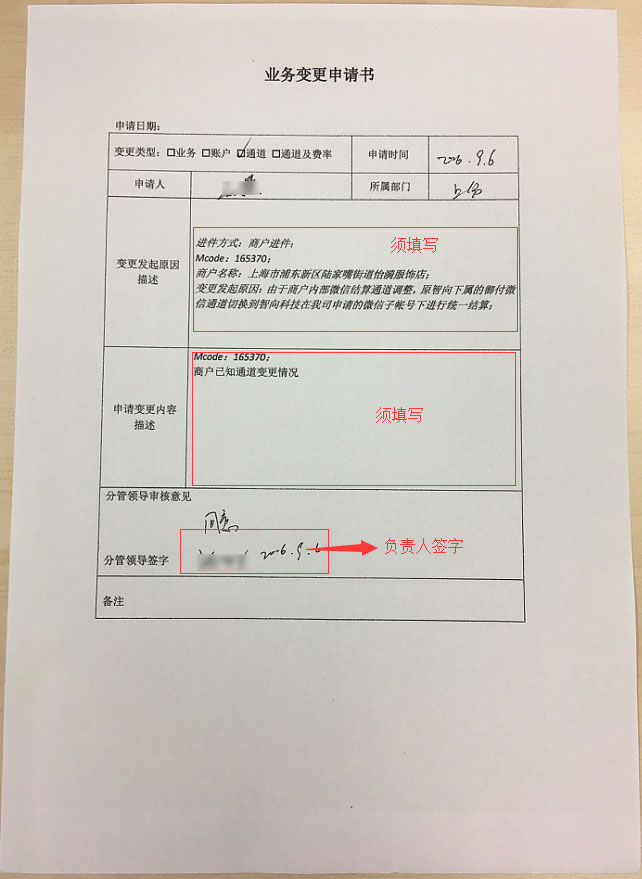 业务变更申请书
申请日期：
变更类型：☐业务 ☐账户 ☑通道 ☐通道及费率 申请时间 2016.9.6
申请人 所属部门
变更发起原因描述
进件方式：商户进件；
须填写
Mcode：165370；
商户名称：上海市浦东新区陆家嘴街道怡漪服饰店；
变更发起原因：由于商户内部微信结算通道调整，原智向下属的御付微
信通道切换到智向科技在我司申请的微信子帐号下进行统一结算；
申请变更内容描述
Mcode：165370；
商户已知通道变更情况
须填写
分管领导审核意见
同意
分管领导签字 2016.9.6
负责人签字
备注